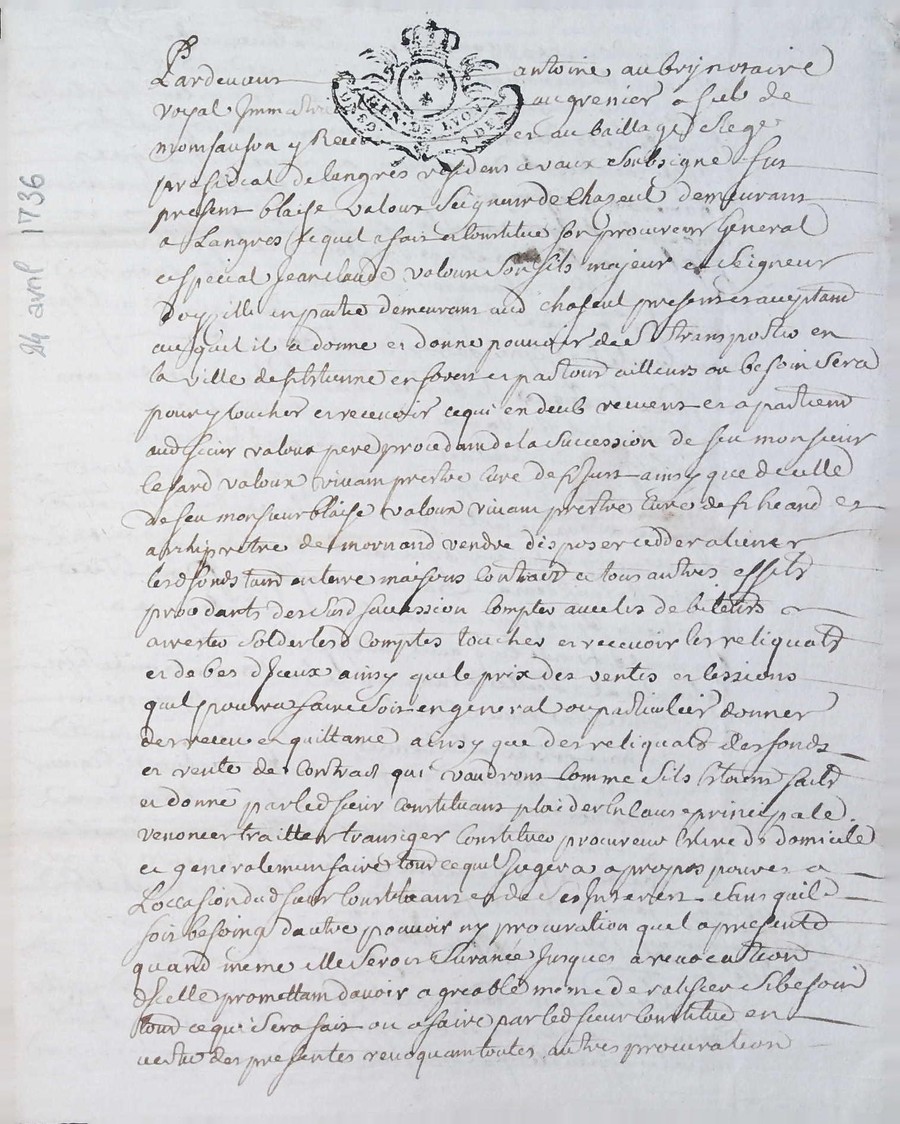 24 avril 1736
GEN. DE LYON
Pardevant antoine aubry notaire
royal Immatri au grenier a sel de
monsauson y Rece et au bailliage Siege
presidial de langres residens a vaux Soubsigne fut
present blaise valoux Seigneur de Chazeul demeurant
a Langres lequel a fait et Constitue son procureur General
et special Jean claude valoux Son fils majeur et Seigneur
en partie demeurant aud chaseul present et acceptand
auquel il a donne et donne pouvoir de Se transporter en
la ville de st Etienne en forest et partout ailleurs ou besoin Sera
pour y toucher et recevoir ce qui en deub revient et apartient
aud sieur valoux pere procedam de la Succession de feu monsieur
valoux vivam prestre Curé de st Just ainsy que de celle
de feu monsieur blaise valoux vivam prestre Curé de st heand et
archiprêtre de mornand vendre disposer cedder aliener
lesd fonds tand en terre maisons Contract et tous autres effets
procedants desd succession compter avec les debiteurs
arrester Solder lesd Comptes toucher et recevoir les reliquats
et debes d'Iceux ainsy que le prix des ventes et Cessions
quil poura faire Soit en general ou particulier donner
des receu et quittance ainsy que des reliquats des fonds
et vente de Contract qui vaudrons Comme Sils Etoient faits
et donné par led sieur Constituant plaider En Cause principale
renoncer traitter transiger Constituer procureur Elire Ds domicile
et generalement faire tout ce quil Jugera a propos pour et a
Loccasion dud sieur Constituant et de Ses Interest Sans quil
soit besoing dautre pouvoir ny procuration que la presente
quand meme elle Seroit Surannée Jusques a revocation
dIcelle promettam davoir agreable meme de ratifier Si besoin
tout ce qui Sera fait ou a faire par led sieur Constitué en
vertu des presentes revoquam toutes autres procuration